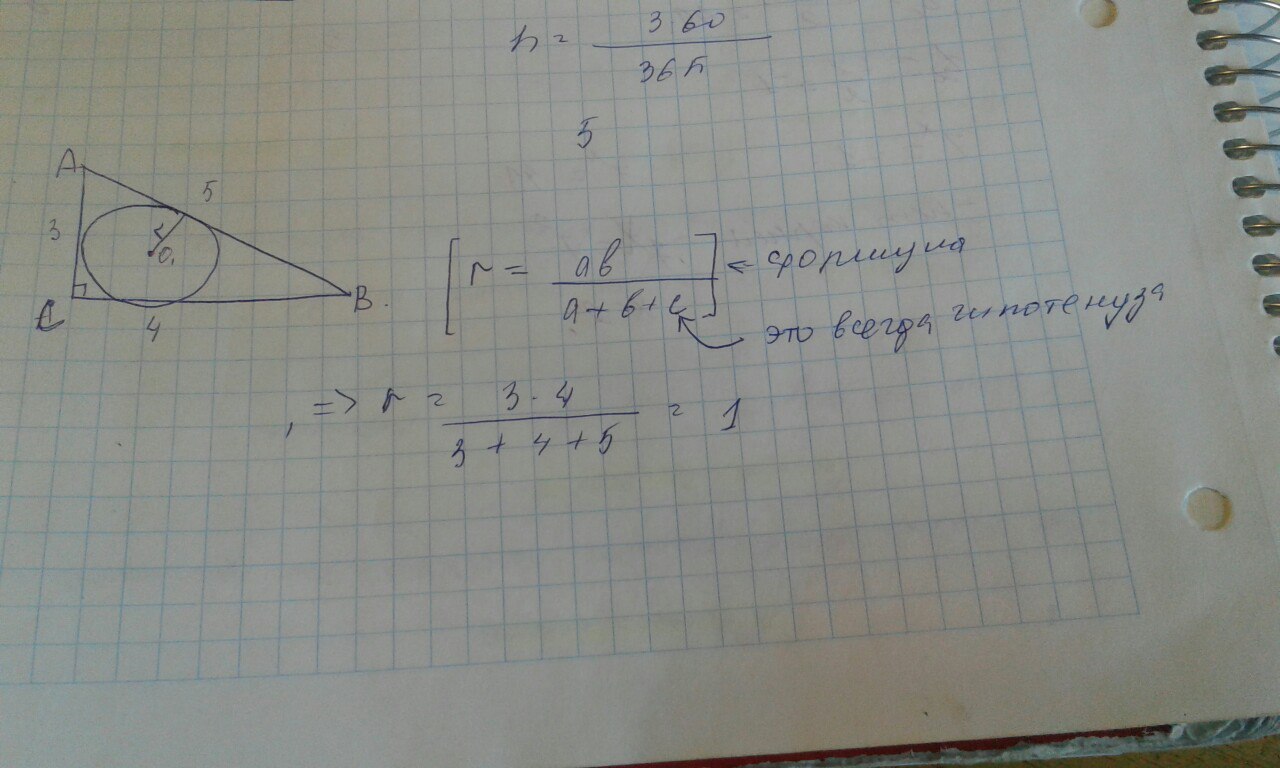 n = 360 / 36π
5
A
5
3
r
O₁
C
4
B.
[ r = ab / a + b + c ] ← формула
это всегда гипотенуза
, => r = 3 · 4 / 3 + 4 + 5 = 1